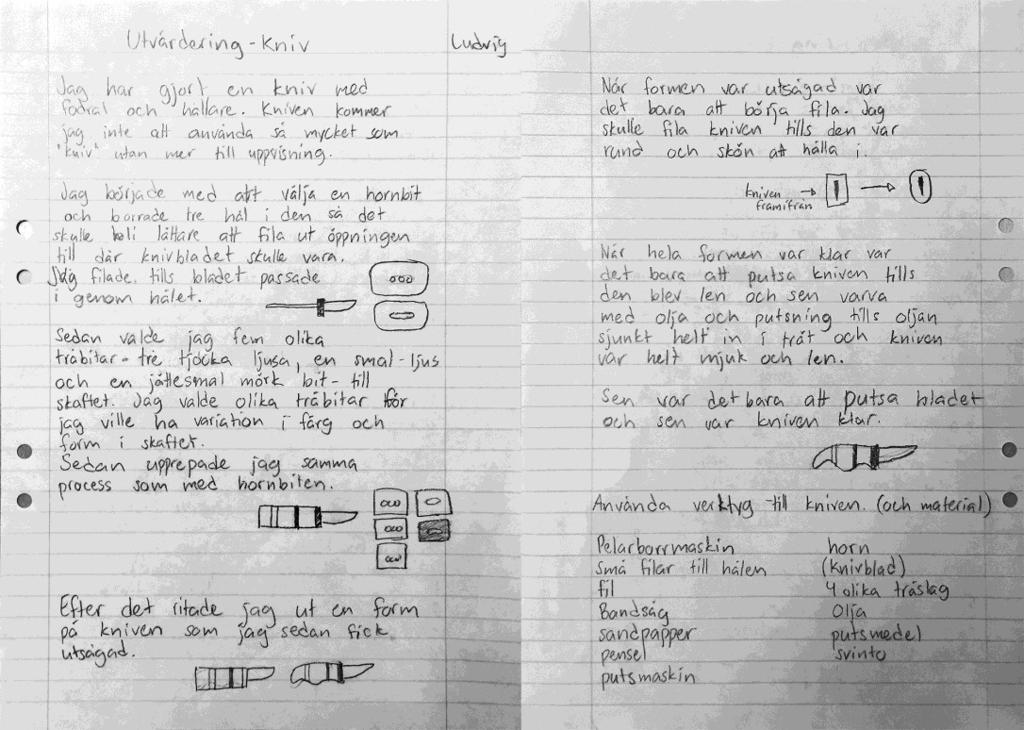 Utvärdering - Kniv
Ludvig
Jag har gjort en kniv med
fodral och hållare. Kniven kommer
jag inte att använda så mycket som
"kniv" utan mer till uppvisning.
Jag började med att välja en hornbit
och borrade tre hål i den så det
skulle bli lättare att fila ut öppningen
till där knivbladet skulle vara.
Jag filade tills bladet passade
i genom hålet.
Sedan valde jag fem olika
träbitar - tre tjocka ljusa, en smal-ljus
och en jättesmal mörk bit - till
skaftet. Jag valde olika träbitar för
jag ville ha variation i färg och
form i skaftet.
Sedan upprepade jag samma
process som med hornbiten.
Efter det ritade jag ut en form
på kniven som jag sedan fick
utsågad.
När formen var utsågad var
det bara att börja fila. Jag
skulle fila kniven tills den var
rund och skön att hålla i.
kniven
framifrån
När hela formen var klar var
det bara att putsa kniven tills
den blev len och sen varva
med olja och putsning tills oljan
sjunkt helt in i trät och kniven
var helt mjuk och len.
Sen var det bara att putsa bladet
och sen var kniven klar.
Använda verktyg till kniven. (och material)
Pelarborrmaskin
små filar till hålen
fil
Bandsåg
sandpapper
pensel
putsmaskin
horn
(knivblad)
4 olika träslag
Olja
putsmedel
svinto